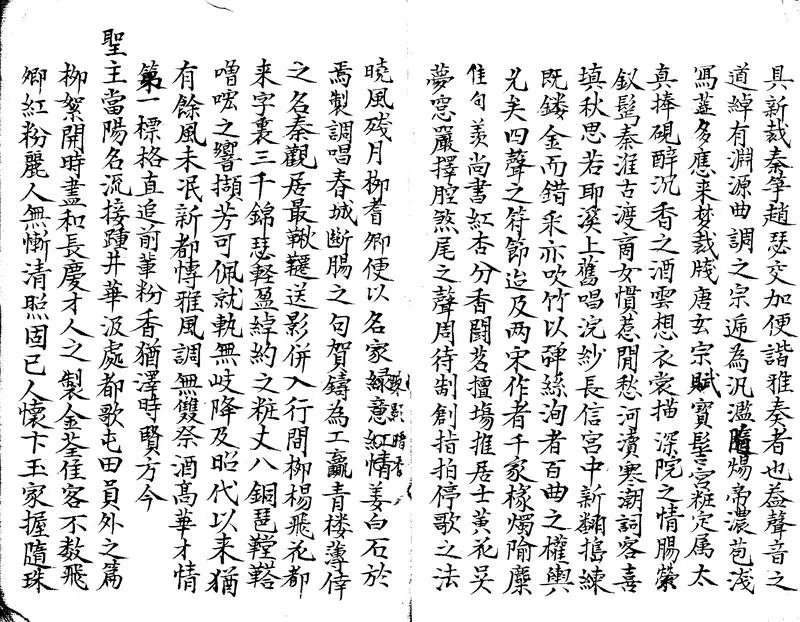 具新裁秦箏趙瑟交加便諧雅奏者也蓋聲音之
道綽有淵源曲調之宗遞為汎濫隨煬帝濃苞淺
寫蓝多應来梦裁牋唐玄宗賦寶髻宮粧定属太
真捧硯醉沉香之酒雲想衣裳描深院之情腸縈
釵髩秦淮古渡商女慣惹閒愁河瀆寒潮詞客喜
填秋思若耶溪上舊唱浣紗長信宮中新翻搗練
既鏤金而錯采亦吹竹以弹絲洵者百曲之權輿
兄矣四聲之符節迨及两宋作者千家椽燭隃麋
佳句羡尚書紅杏分香闘茗擅塲推居士黄花吴
夢窓嚴擇腔煞尾之聲周待制創指拍停歌之法
曉風残月柳耆卿便以名家緑意紅情姜白石於
疎影暗香
焉製調唱春城斷腸之句賀鑄為工贏青楼薄倖
之名秦觀居最鞦韆送影併入行間柳楊飛花都
来字裏三千錦瑟軽盈綽約之粧丈八銅琶鞺鞳
噌吰之響擷芳可佩就軌無岐降及昭代以来猶
有餘風未泯新都博雅風調無雙祭酒髙華才情
第一標格直追前輩粉香猶澤時賢方今
聖主當陽名流接踵井華汲處都歌屯田員外之篇
柳絮開時盡和長慶才人之製金荃佳客不数飛
卿紅粉麗人無慚清照固已人懷卞玉家握隨珠